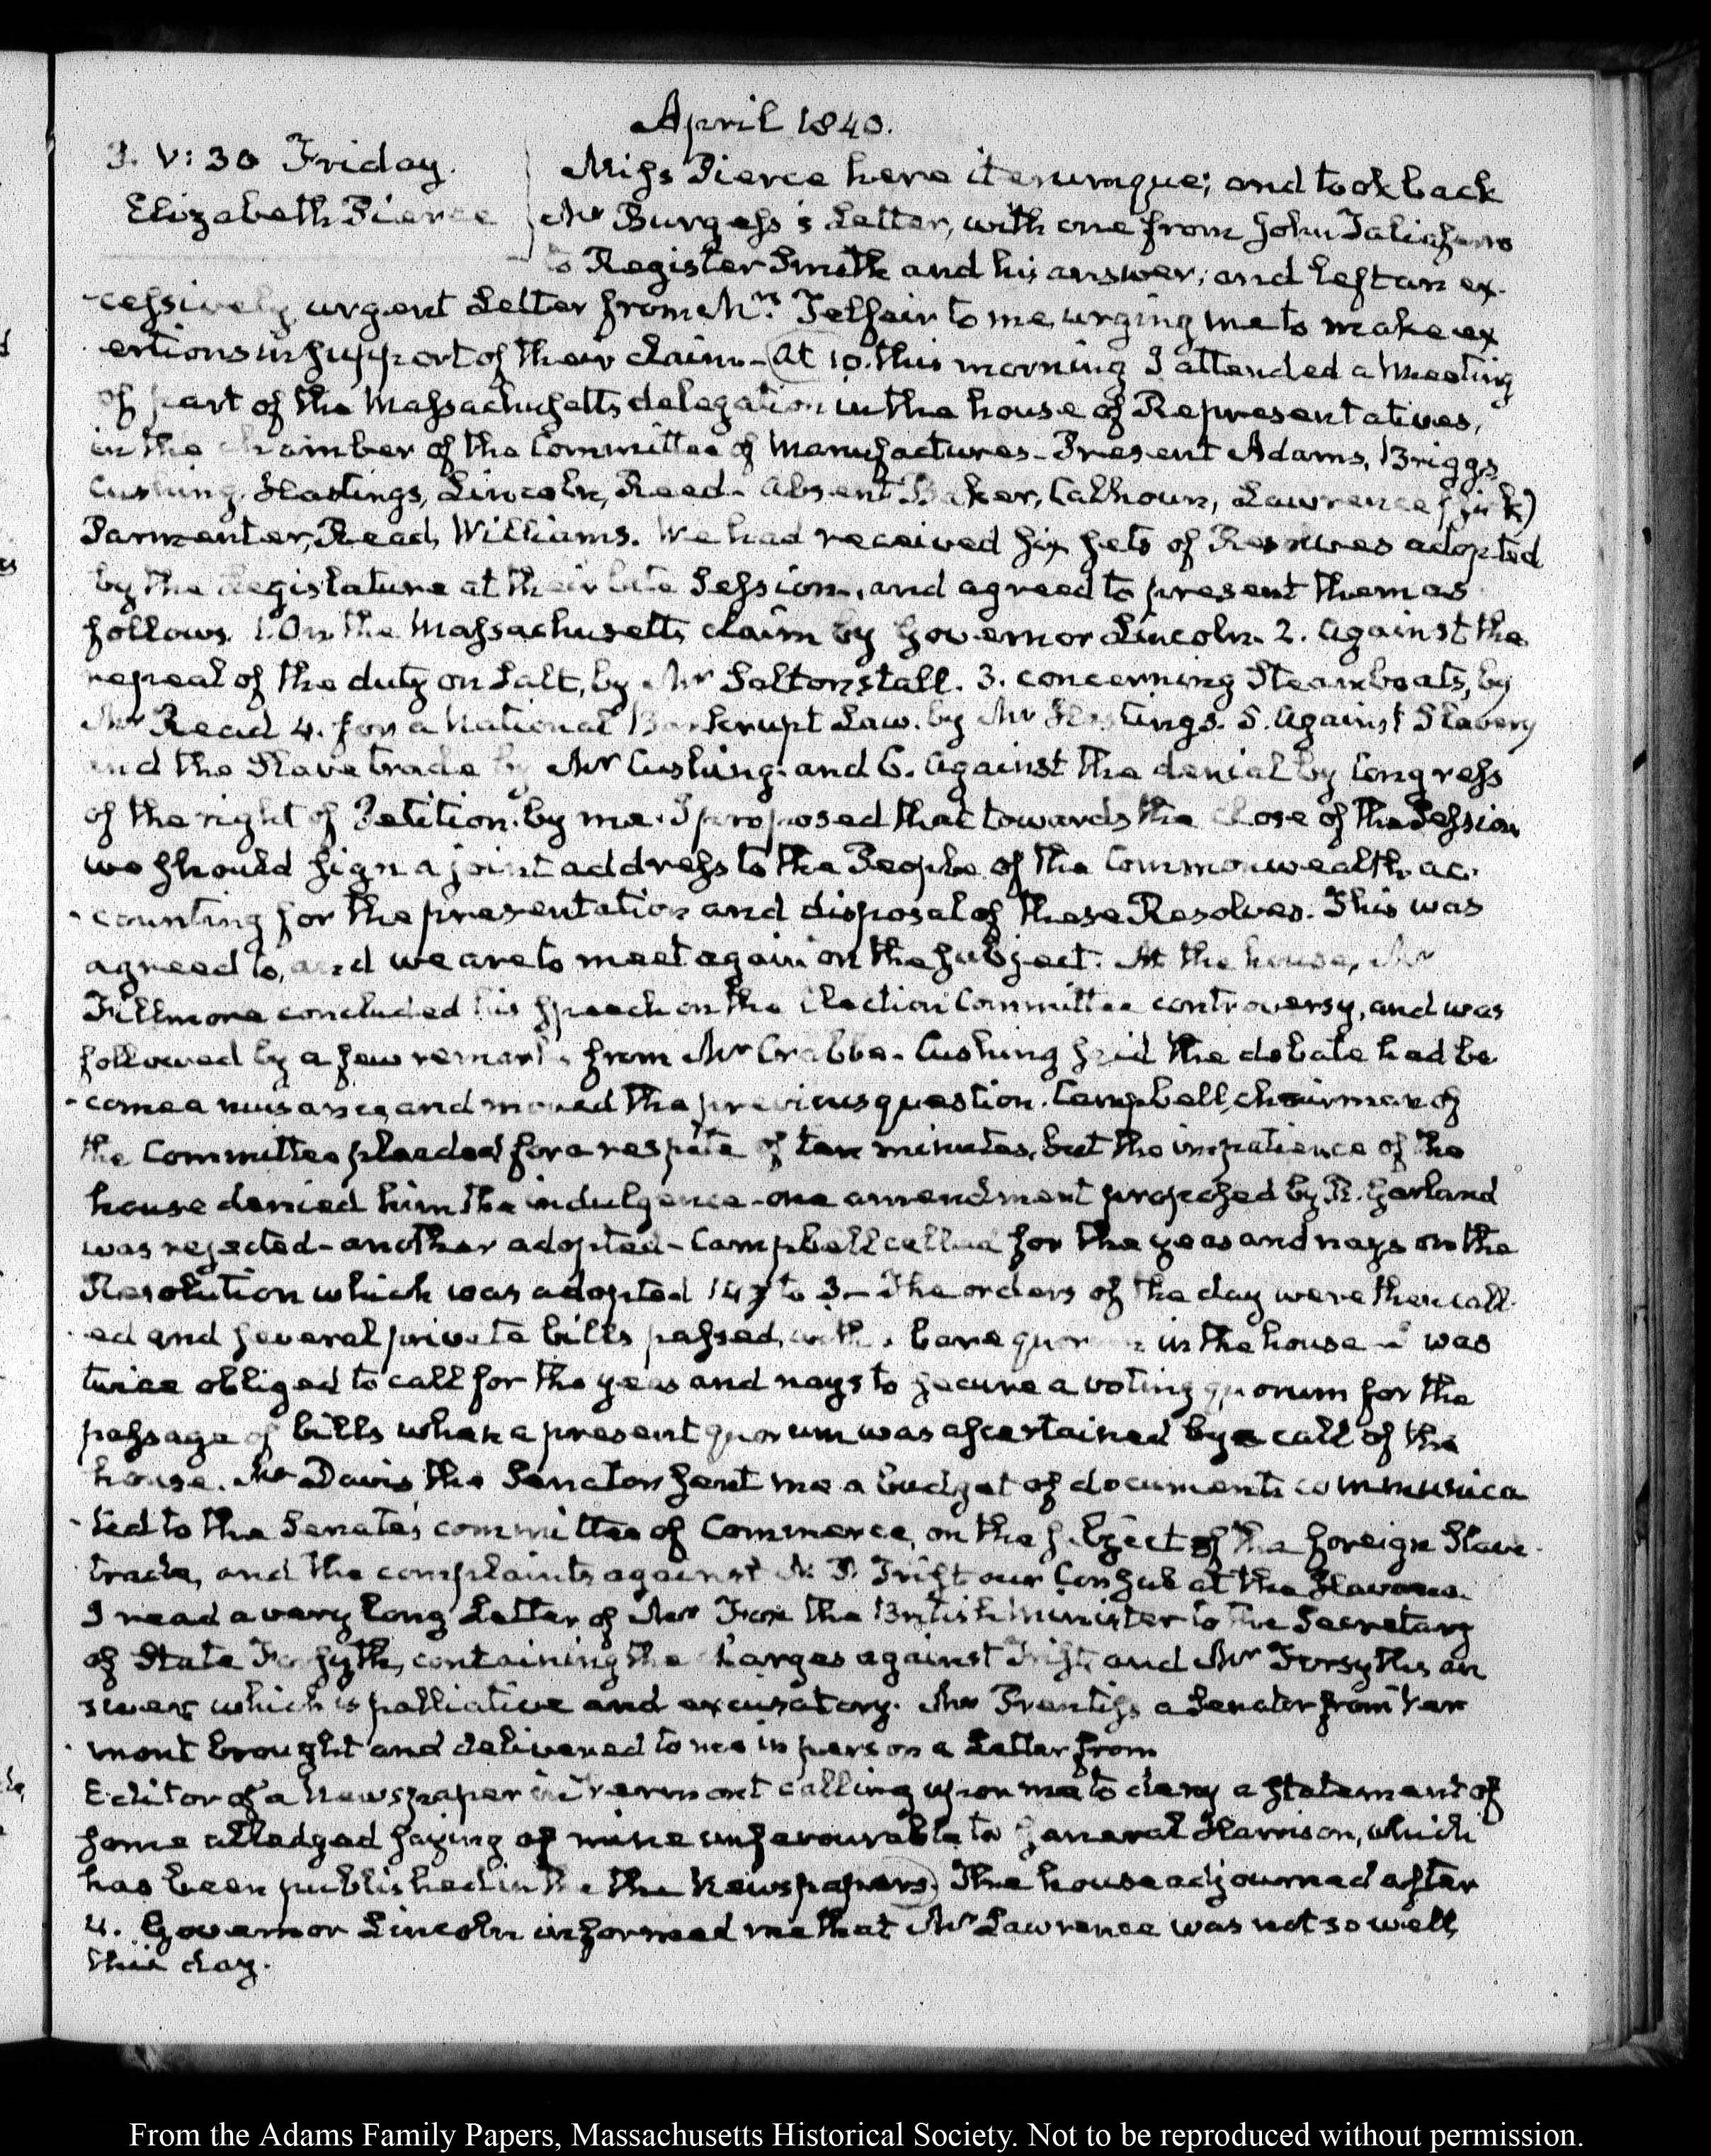 April 1840.
3. V:30 Friday.
Elizabeth Pierce
Miss Pierce here iterumque; and took back
Mr Burgess's Letter, with one from John Taliaferro
to Register Smith and his answer; and left an ex-
-cessively urgent Letter from Mrs. Telfair to me, urging me to make ex
ertions in support of their claim - At 10. this morning I attended a Meeting
of part of the Massachusetts delegation in the house of Representatives,
in the chamber of the Committee of Manufactures - Present Adams, Briggs,
Cushing, Hastings, Lincoln, Reed - Absent Baker, Calhoun, Lawrence (sick)
Parmenter, Read, Williams. We had received six sets of Resolves adopted
by the Legislature at their late Session, and agreed to present them as
follows. 1. On the Massachusetts claim by Governor Lincoln. 2. Against the
repeal of the duty on Salt, by Mr Saltonstall. 3. concerning Steamboats, by
Mr Read 4. for a National Bankrupt Law. by Mr Hastings. 5. Against Slavery
and the Slave trade by Mr Cushing. and 6. Against the denial by Congress
of the right of Petition. by me. I proposed that towards the close of the Session
we should sign a joint address to the People of the Commonwealth ac-
-counting for the presentation and disposal of these Resolves. This was
agreed to, and we are to meet again on the subject. At the house, Mr
Fillmore concluded his speech on the Election Committee controversy, and was
followed by a few remarks from Mr Crabbe - Cushing said the debate had be
-come a nuisance, and moved the previous question. Campbell, chairman of
the Committee pleaded for a respite of ten minutes, but the impatience of the
house denied him the indulgence - one amendment proposed by R. Garland
was rejected - another adopted - Campbell called for the yeas and nays on the
Resolution which was adopted 147 to 3 - The orders of the day were then call-
-ed and several private bills passed, with a bare quorum in the house I was
twice obliged to call for the yeas and nays to secure a voting quorum for the
passage of bills when a present quorum was ascertained by a call of the
house. Mr Davis the Senator sent me a budget of documents communica
-ted to the Senate's committee of Commerce, on the subject of the foreign Slave-
trade, and the complaints against N. P. Trist our Consul at the Havana.
I read a very long Letter of Mr Fox the British Minister to the Secretary
of State Forsyth, containing the charges against Trist, and Mr Forsyth's an
swer which is palliative and excusatory. Mr Prentiss a Senator from Ver
-mont brought and delivered to me in person a Letter from
Editor of a Newspaper in Vermont calling upon me to deny a statement of
some alledged saying of mine unfavourable to General Harrison, which
has been published in the the Newspapers. The house adjourned after
4. Governor Lincoln informed me that Mr Lawrence was not so well
this day.
From the Adams Family Papers, Massachusetts Historical Society. Not to be reproduced without permission.